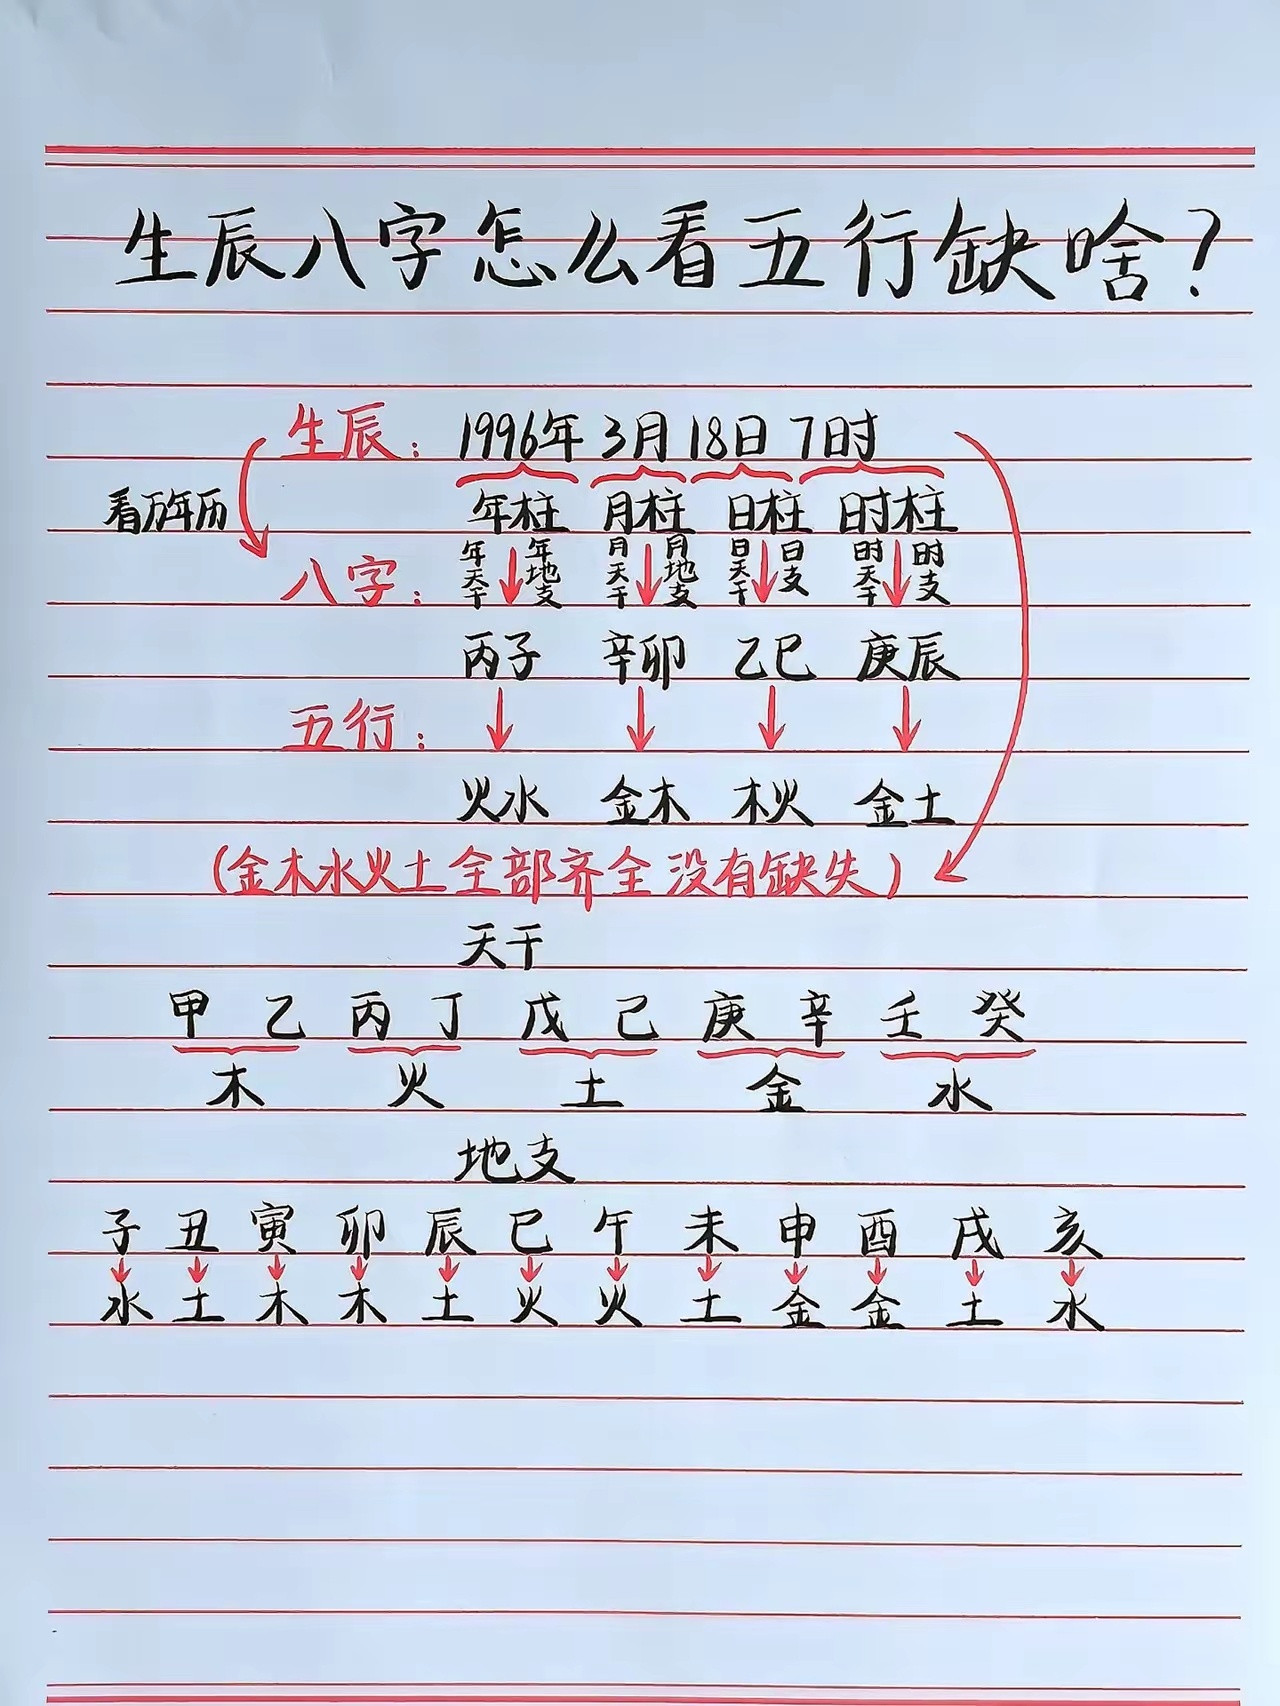 生辰八字怎么看五行缺啥?
生辰: 1996年 3月 18日 7时
看万年历 年柱 月柱 日柱 时柱
八字: 年天干 年地支 月天干 月地支 日天干 日支 时天干 时支
丙子 辛卯 乙巳 庚辰
五行:
火水 金木 木火 金土
(金木水火土全部齐全 没有缺失)
天干
甲 乙 丙 丁 戊 己 庚 辛 壬 癸
木 火 土 金 水
地支
子 丑 寅 卯 辰 巳 午 未 申 酉 戌 亥
水 土 木 木 土 火 火 土 金 金 土 水